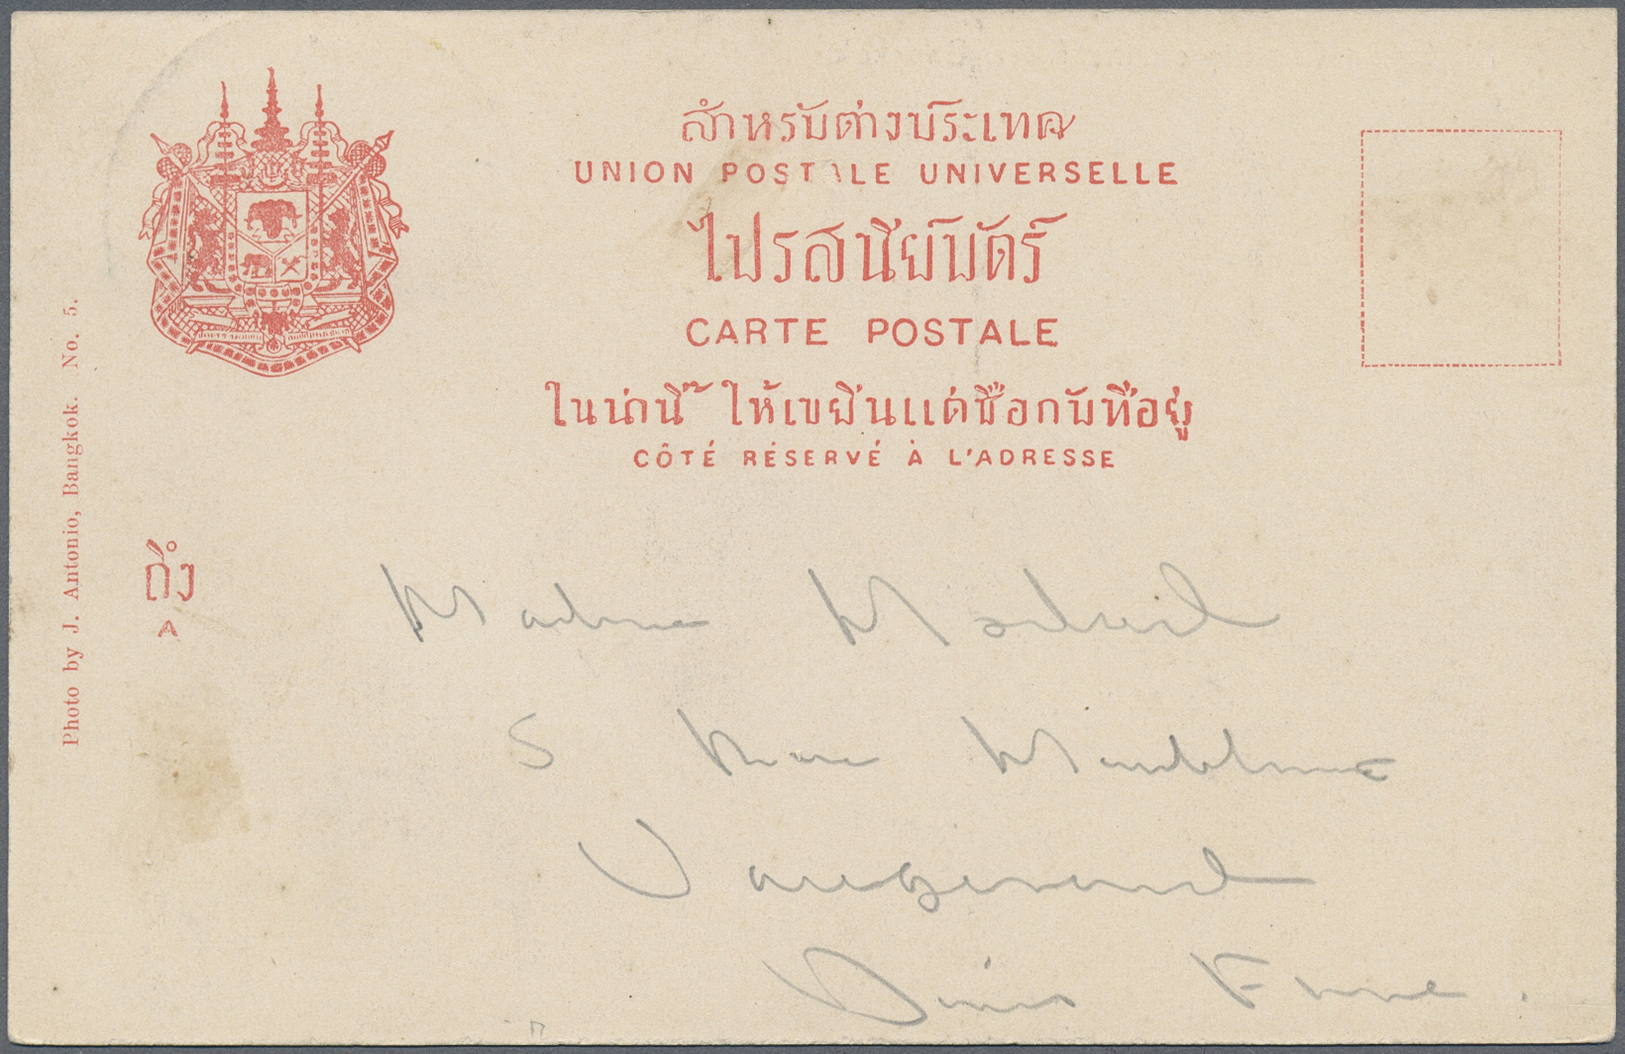 สำหรับต่างประเทศ
UNION POSTALE UNIVERSELLE
ไปรสนีย์บัตร์
CARTE POSTALE
ในน่านี้ ให้เขียนแต่ชื่อกับที่อยู่
CÔTÉ RÉSERVÉ À L'ADRESSE
Photo by J. Antonio, Bangkok. No. 5.
ถึง
A
Madame
5
Vaugirard